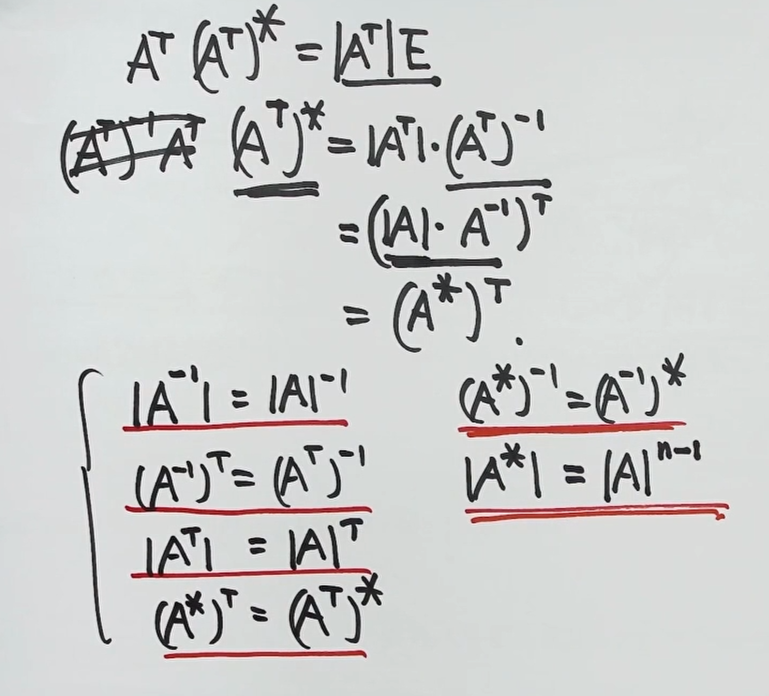 Aᵀ (Aᵀ)* = |Aᵀ|E
(Aᵀ)⁻¹Aᵀ (Aᵀ)* = |Aᵀ|·(Aᵀ)⁻¹
= (|A|· A⁻¹)ᵀ
= (A*)ᵀ.
|A⁻¹| = |A|⁻¹
(A⁻¹)ᵀ = (Aᵀ)⁻¹
|Aᵀ| = |A|ᵀ
(A*)ᵀ = (Aᵀ)*
(A*)⁻¹ = (A⁻¹)*
|A*| = |A|ⁿ⁻¹